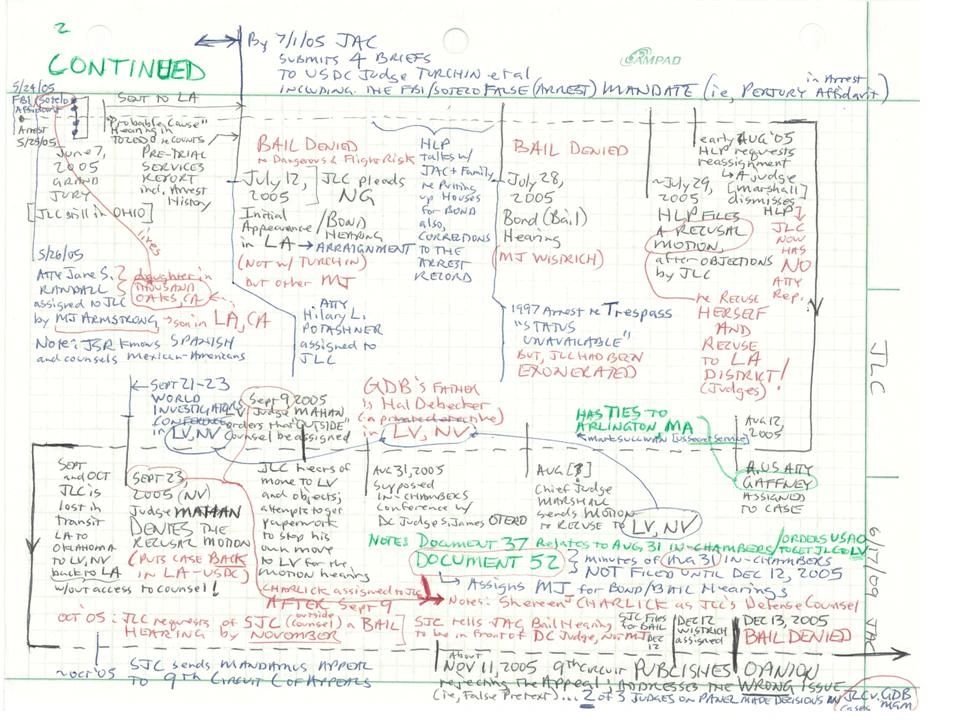 2
CONTINUED
By 7/1/05 JAC
SUBMITS 4 BRIEFS
TO USDC Judge TURCHIN et al
in Arrest
INCLUDING THE FBI/SOTERO FALSE (ARREST) MANDATE (i.e., PERJURY Affidavit)
AMPAD
5/24/05
FBI (Sotelo)
Affidavit
Arrest
5/25/05
SENT TO LA
"Probable Cause"
Hearing in
TOLEDO re COUNTS
PRE-TRIAL
SERVICES
REPORT
incl. Arrest
History
June 7,
2005
GRAND
JURY
[JLC still in OHIO]
lives
5/26/05
ATTY Jane S.
RANDALL
assigned to JLC
by MJ ARMSTRONG, → son in LA, CA
daughter in
THOUSAND
OAKS, CA
Note: JSR knows SPANISH
and counsels Mexican-Americans
BAIL DENIED
re Dangerous & Flight Risk
July 12,
2005
JLC pleads
NG
Initial
Appearance / BOND
HEARING
in LA → ARRAIGNMENT
(NOT w/ TURCHIN)
but other MJ
ATTY
Hilary L.
POTASHNER
assigned to
JLC
HLP
talks w/
JAC + Family
re Putting
up Houses
for BOND
also,
CORRECTIONS
TO THE
ARREST
RECORD
BAIL DENIED
July 28,
2005
Bond (Bail)
Hearing
(MJ WISTRICH)
1997 Arrest re Trespass
"STATUS
UNAVAILABLE"
BUT, JLC HAD BEEN
EXONERATED
~July 29,
2005
HLP FILES
A RECUSAL
MOTION,
after OBJECTIONS
by JLC
re RECUSE
HERSELF
AND
RECUSE
TO LA
DISTRICT!
(Judges)
early AUG '05
HLP requests
reassignment
↳ A judge
[marshall]
dismisses
HLP
JLC
NOW
HAS
NO
ATTY
Rep.
JLC
← SEPT 21-23
WORLD
INVESTIGATORS
CONFERENCE
in LV, NV
Sept 9 2005
LV Judge MAHAN
orders that "OUTSIDE"
Counsel be assigned
GDB'S FATHER
is Hal Debecker
(a private detective)
in LV, NV
HAS TIES TO
ARLINGTON MA
Mark Sullivan [US Secret Service]
AUG 12,
2005
AUS ATTY
GAFFNEY
ASSIGNED
TO CASE
SEPT
and OCT
JLC is
lost in
transit
LA to
OKLAHOMA
to LV, NV
back to LA
w/out access to counsel!
SEPT 23,
2005 (NV)
Judge MAHAN
DENIES THE
RECUSAL MOTION
(PUTS CASE BACK
IN LA-USDC)
JLC hears of
move to LV
and objects;
attempts to get
paperwork
to stop his
own move
to LV for the
motion hearing
CHARLICK assigned to JLC
AFTER Sept 9
AUG 31, 2005
supposed
in-CHAMBERS
Conference w/
DC Judge S. James OTERO
AUG [3]
Chief Judge
MARSHALL
sends MOTION
to RECUSE to LV, NV
NOTE: DOCUMENT 37 Relates to AUG 31 IN-CHAMBERS / ORDERS USAO
TO GET JLC to LV
DOCUMENT 52 } minutes of (Aug 31) IN-CHAMBERS
NOT FILED UNTIL DEC 12, 2005
↳ Assigns MJ for BOND/BAIL Hearings
Notes: Shereen CHARLICK as JLC's Defense Counsel
OCT '05: JLC requests of SJC (outside Counsel) a BAIL
HEARING by NOVEMBER
SJC tells JAC Bail Hearing
to be in front of DC Judge, Not MJ
SJC FILES
for BAIL
DEC
12
DEC 12
WISTRICH
assigned
DEC 13, 2005
BAIL DENIED
6/17/09 JAC
~OCT '05
SJC sends MANDAMUS APPEAL
TO 9th CIRCUIT C of APPEALS
About
NOV 11, 2005 9th Circuit PUBLISHES OPINION
rejecting the Appeal; ADDRESSES THE WRONG ISSUE
(i.e, False Pretext)... 2 of 3 JUDGES ON PANEL MADE DECISIONS IN JLC v. GDB
Cases MGM